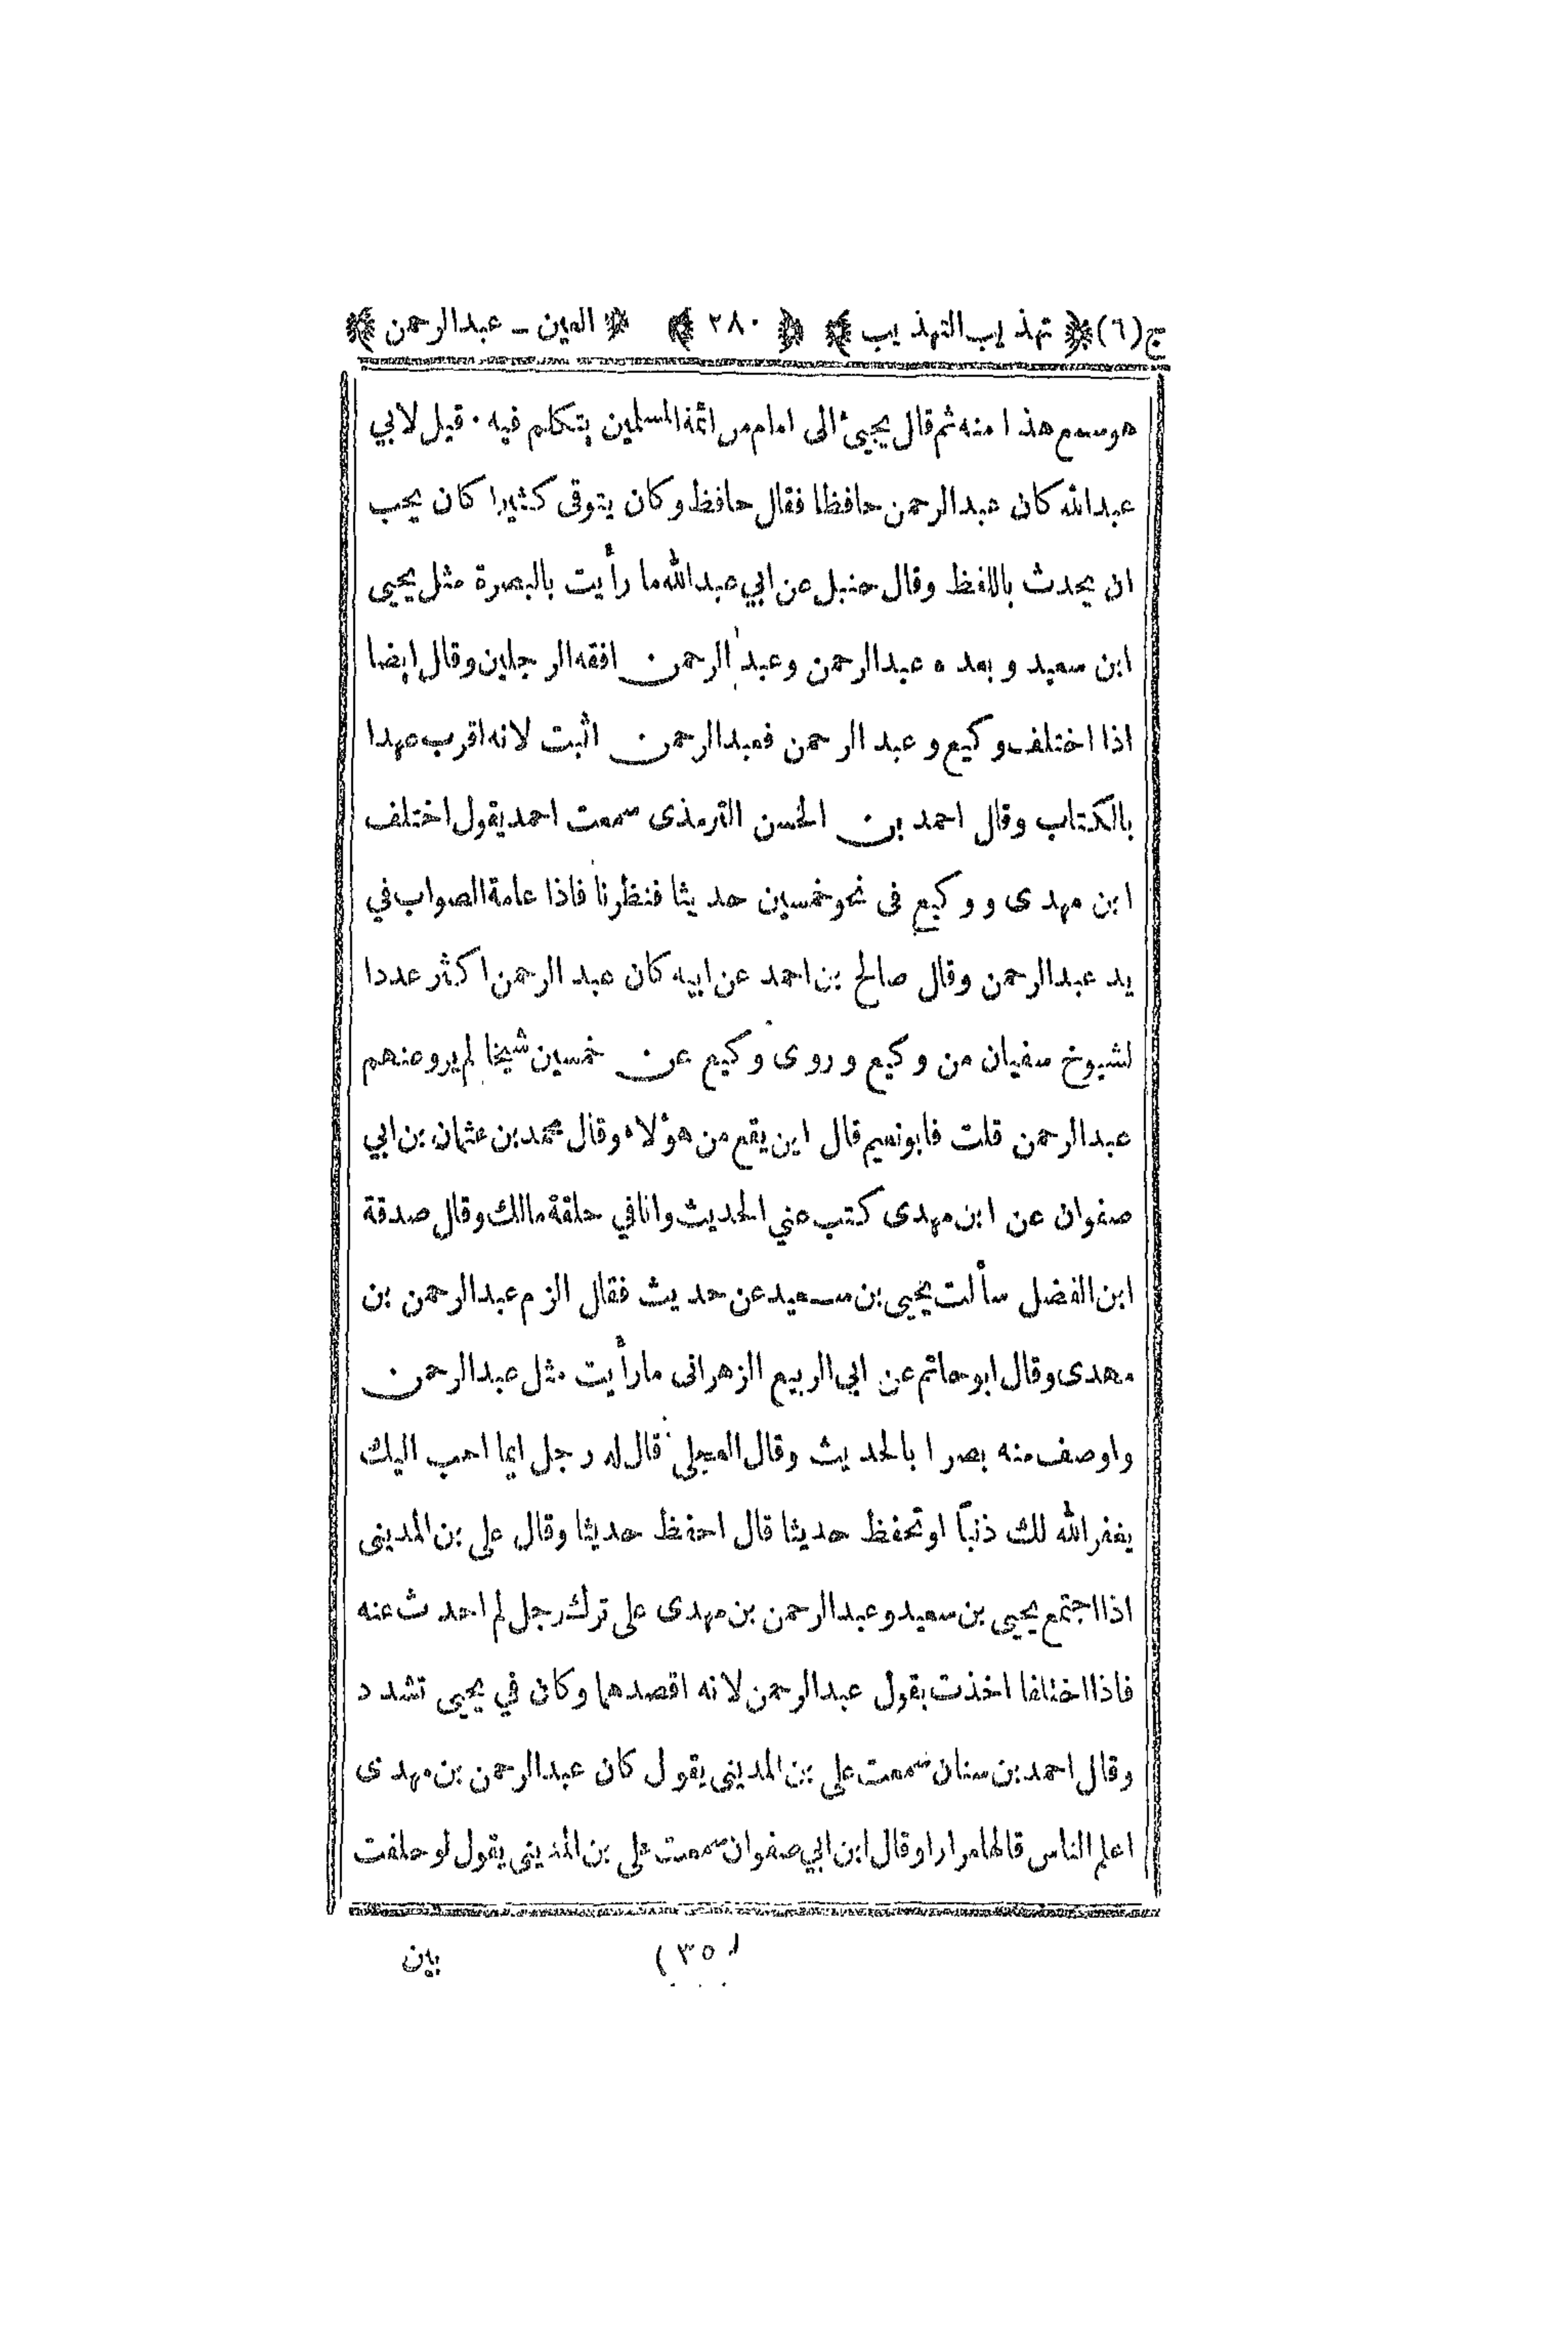 ج(٦) ﴿ تهذيب التهذيب ﴾ ﴿ ٢٨٠ ﴾ ﴿ العين ـ عبدالرحمن ﴾
هو سمع هذا منه ثم قال يجيئ الى امام من ائمة المسلمين يتكلم فيه . قيل لابي
عبدالله كان عبدالرحمن حافظا فقال حافظ وكان يتوقى كثيرا كان يحب
ان يحدث باللفظ وقال حنبل عن ابي عبدالله ما رأيت بالبصرة مثل يحيى
ابن سعيد و بعده عبدالرحمن وعبدالرحمن افقه الرجلين وقال ايضا
اذا اختلف وكيع و عبد الرحمن فعبدالرحمن اثبت لانه اقرب عهدا
بالكتاب وقال احمد بن الحسن الترمذى سمعت احمد يقول اختلف
ابن مهدى و وكيع فى نحو خمسين حديثا فنظرنا فاذا عامة الصواب في
يد عبدالرحمن وقال صالح بن احمد عن ابيه كان عبد الرحمن اكثر عددا
لشيوخ سفيان من وكيع و روى وكيع عن خمسين شيخا لم يرو عنهم
عبدالرحمن قلت فابونعيم قال اين يقع من هؤلاء وقال محمد بن عثمان بن ابي
صفوان عن ابن مهدى كتب عني الحديث وانا في حلقة مالك وقال صدقة
ابن الفضل سألت يحيى بن سعيد عن حديث فقال الزم عبدالرحمن بن
مهدى وقال ابو حاتم عن ابي الربيع الزهرانى ما رأيت مثل عبدالرحمن
واوصف منه بصرا بالحديث وقال العجلى قال له رجل ايما احب اليك
يغفر الله لك ذنبًا او تحفظ حديثا قال احفظ حديثا وقال على بن المدينى
اذا اجتمع يحيى بن سعيد و عبدالرحمن بن مهدى على ترك رجل لم احدث عنه
فاذا اختلفا اخذت بقول عبدالرحمن لانه اقصدهما وكان في يحيى تشدد
وقال احمد بن سنان سمعت على بن المدينى يقول كان عبدالرحمن بن مهدى
اعلم الناس قالها مرارا وقال ابن ابي صفوان سمعت على بن المدينى يقول لو حلفت
(٣٥) بين